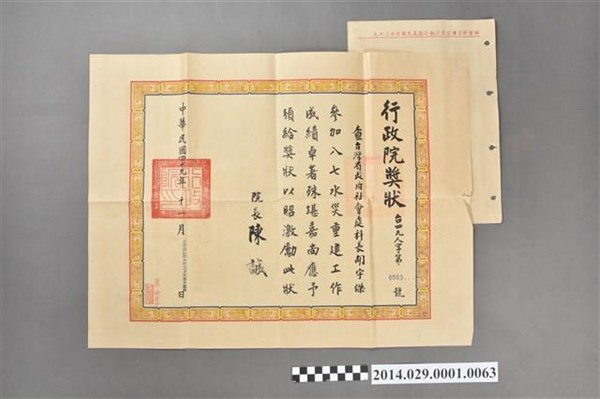 行政院獎狀
台四九人字第 6503 號
查台灣省政府社會處科長胡宇傑
參加八七水災重建工作
成績卓著殊堪嘉尚應予
頒給獎狀以昭激勵此狀
院長 陳誠
中華民國四十九年十一月 日
2014.029.0001.0063